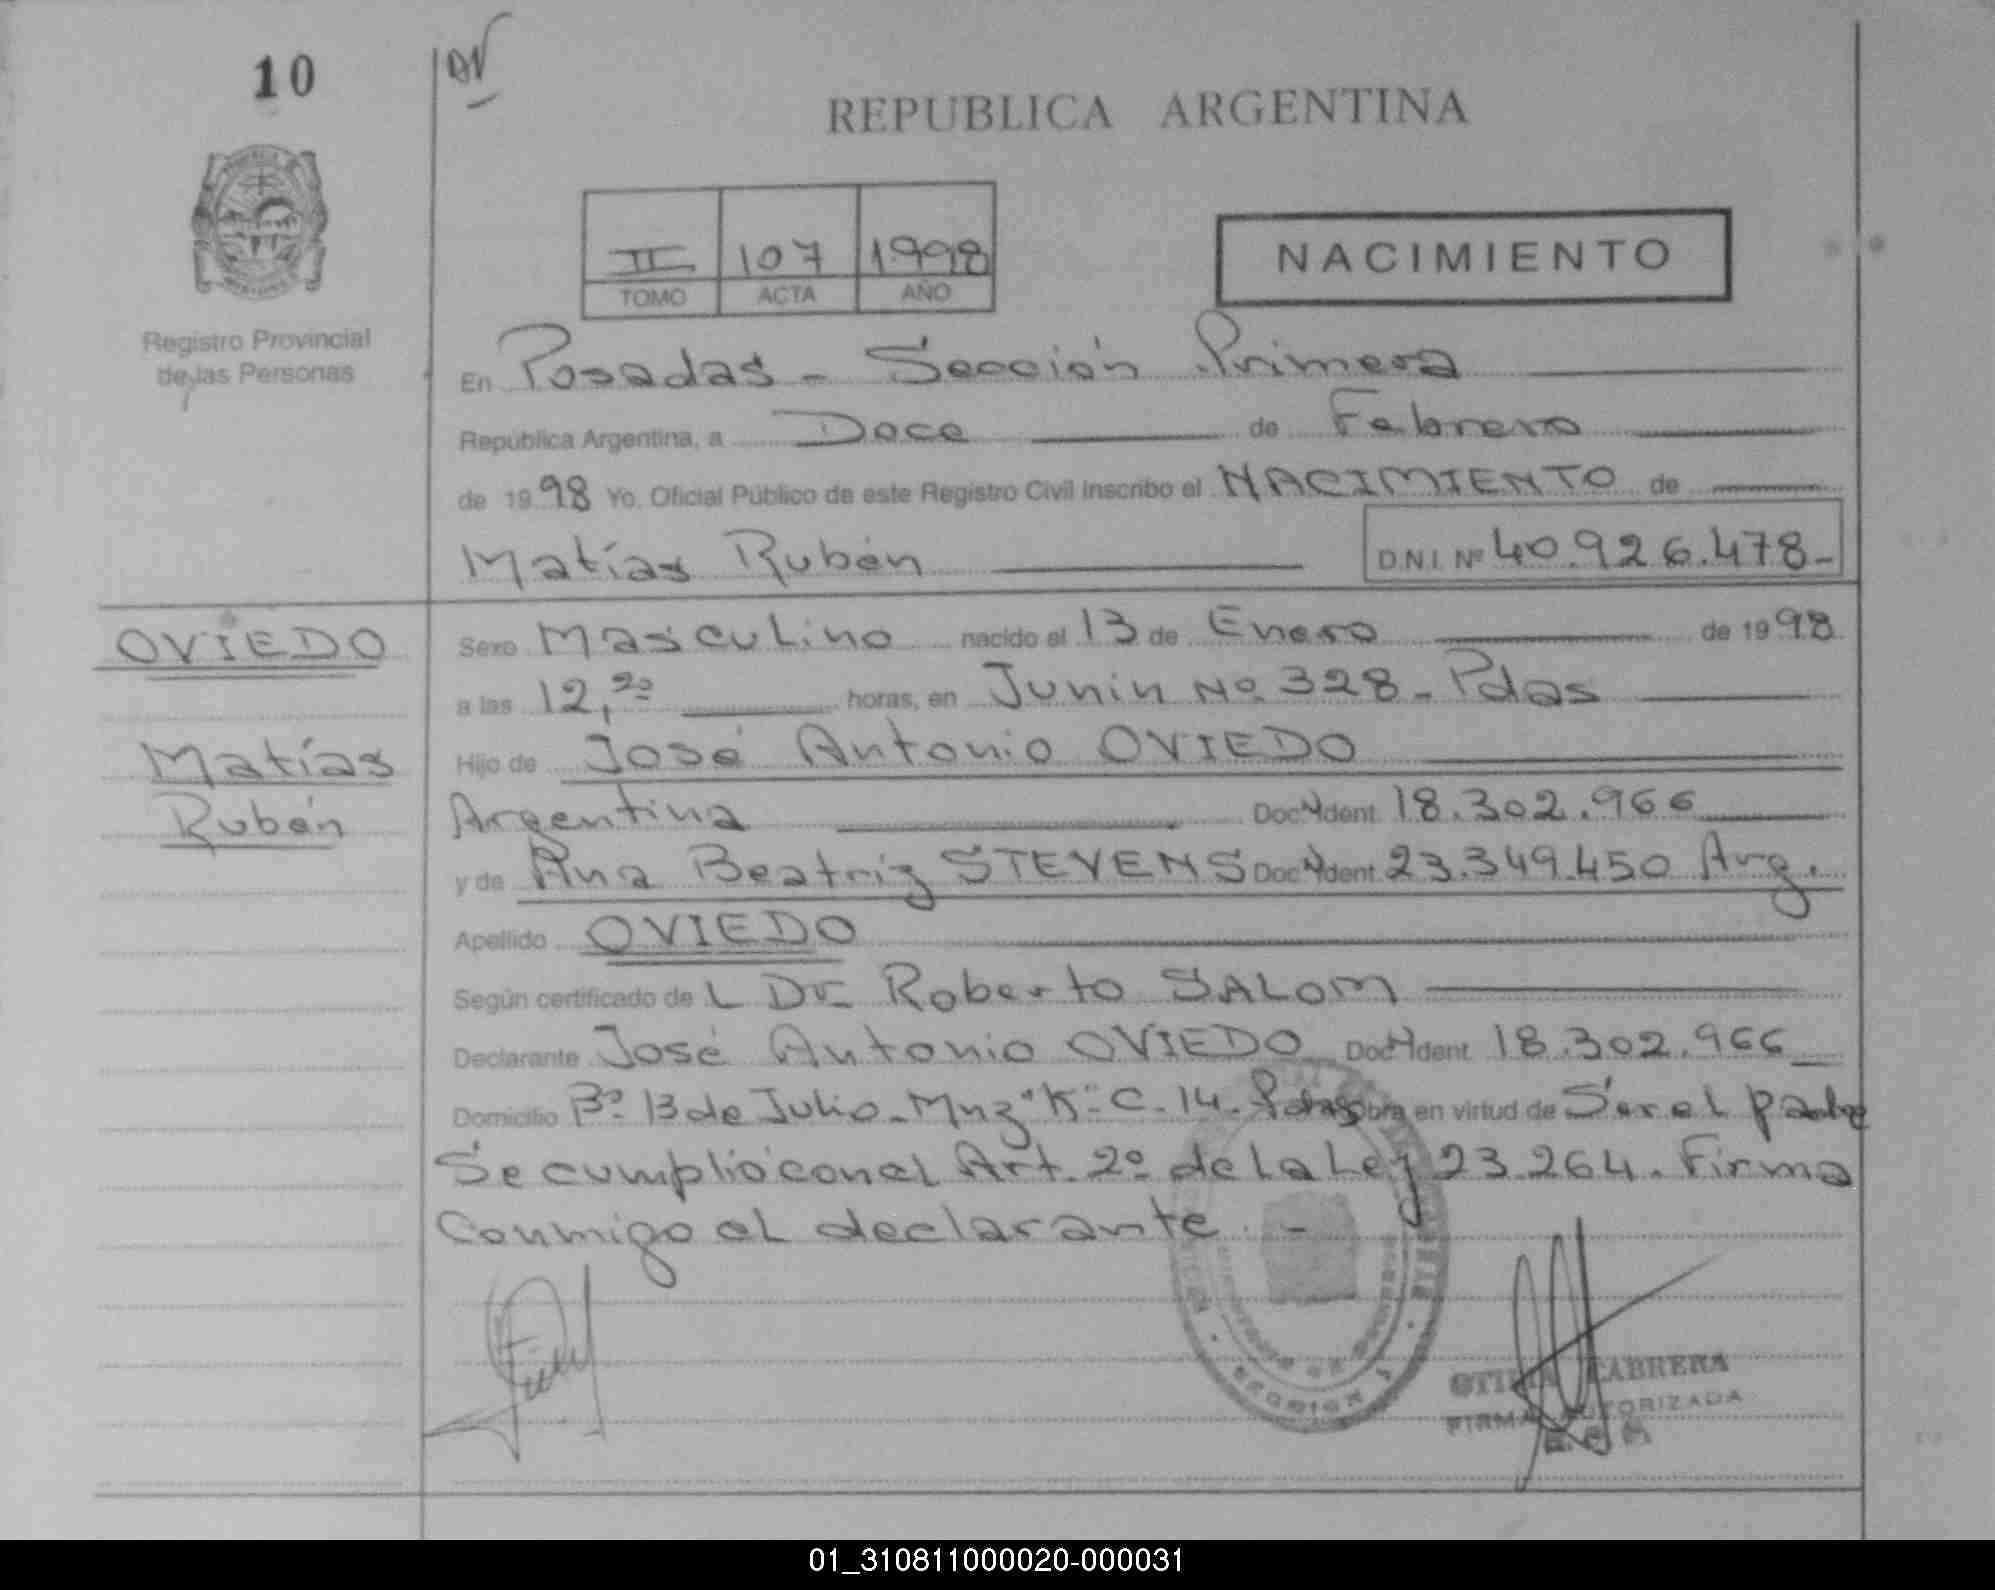 10
REPUBLICA ARGENTINA
II 107 1998
TOMO ACTA AÑO
NACIMIENTO
Registro Provincial
de las Personas
En Posadas - Sección Primera
República Argentina, a Doce de Febrero
de 1998 Yo, Oficial Público de este Registro Civil inscribo el NACIMIENTO de
Matías Rubén D.N.I. Nº 40.926.478-
OVIEDO
Matías
Rubén
Sexo Masculino nacido el 13 de Enero de 1998
a las 12,20 horas, en Junin Nº 328 - Pdas
Hijo de José Antonio OVIEDO
Argentina Doc. Ident. 18.302.966
y de Ana Beatriz STEVENS Doc. Ident. 23.349.450 Arg.
Apellido OVIEDO
Según certificado de L Dr. Roberto SALOM
Declarante José Antonio OVIEDO Doc. Ident. 18.302.966
Domicilio Bº 13 de Julio - Mnz "K" - C. 14 - Pdas Obra en virtud de Ser el padre
Se cumplió con el Art. 2º de la Ley 23.264. Firma
Conmigo el declarante. -
CABRERA
FIRMA AUTORIZADA
01_310811000020-000031